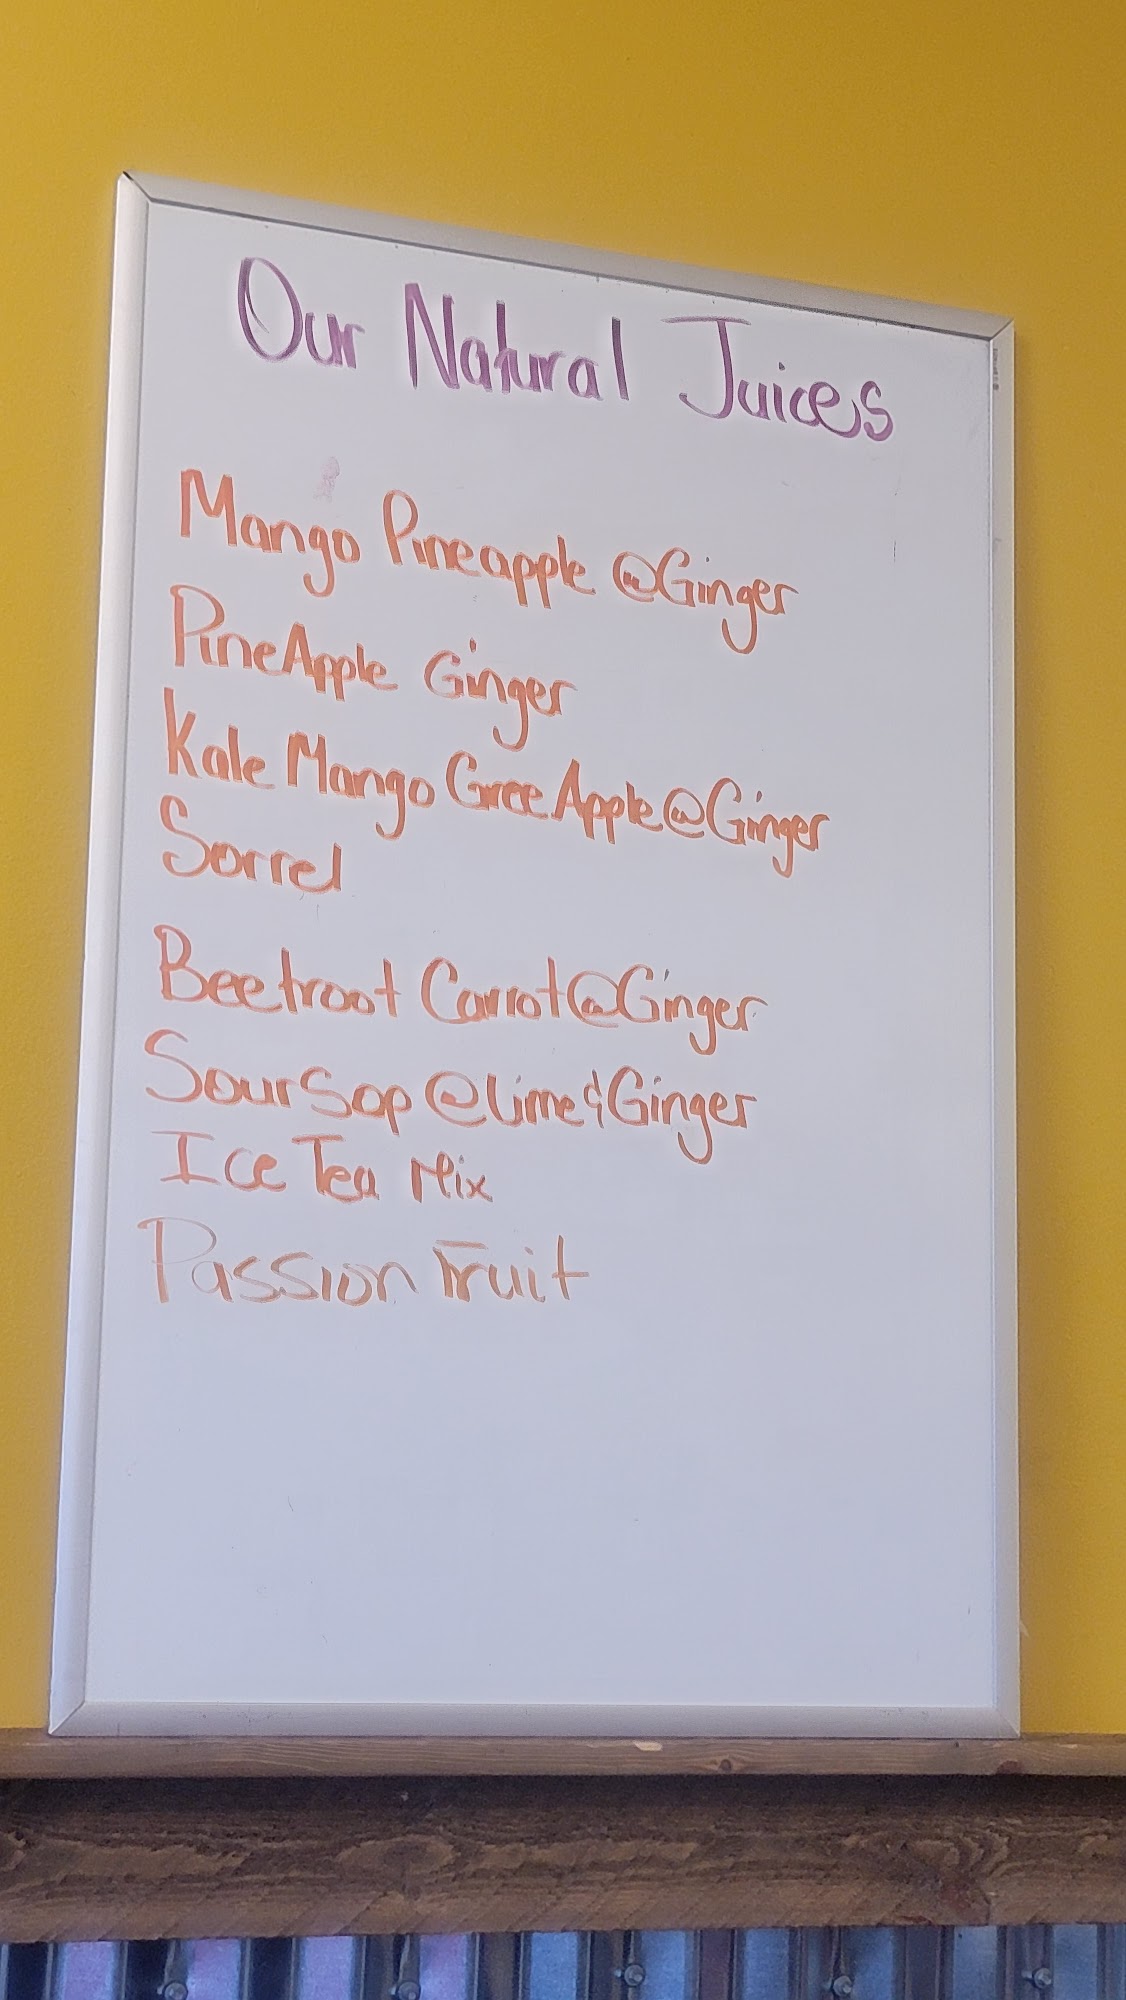 Our Natural Juices
Mango Pineapple @Ginger
PineApple Ginger
Kale Mango Gree Apple@Ginger
Sorrel
Beetroot Carrot@Ginger
SourSop @lime&Ginger
Ice Tea Mix
Passion Fruit